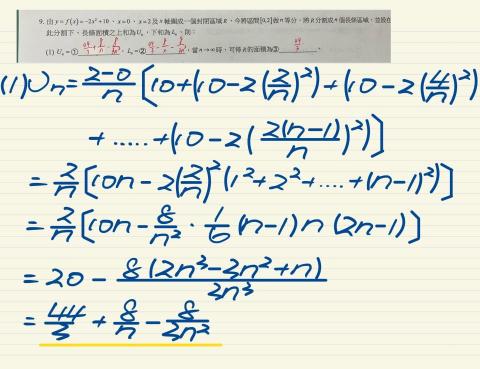 9. 由 y = f(x) = -2x² + 10、x = 0、x = 2 及 x 軸圍成一個封閉區域 R，今將區間[0,2]做 n 等分，將 R 分割成 n 個長條區域，並設在
此分割下，長條面積之上和為 Uₙ，下和為 Lₙ，則：
(1) Uₙ = ① 44/3 + 8/n - 8/3n²，Lₙ = ② 44/3 - 8/n - 8/3n²，當 n → ∞ 時，可得 R 的面積為③ 44/3 。
(1) Uₙ = 2-0/n [10+(10-2(2/n)²)+(10-2(4/n)²)
+ ..... +(10-2(2(n-1)/n)²)]
= 2/n [10n-2(2/n)²(1²+2²+....+(n-1)²)]
= 2/n [10n - 8/n² · 1/6 (n-1)n(2n-1)]
= 20 - 8(2n³-3n²+n)/3n³
= 44/3 + 8/n - 8/3n²